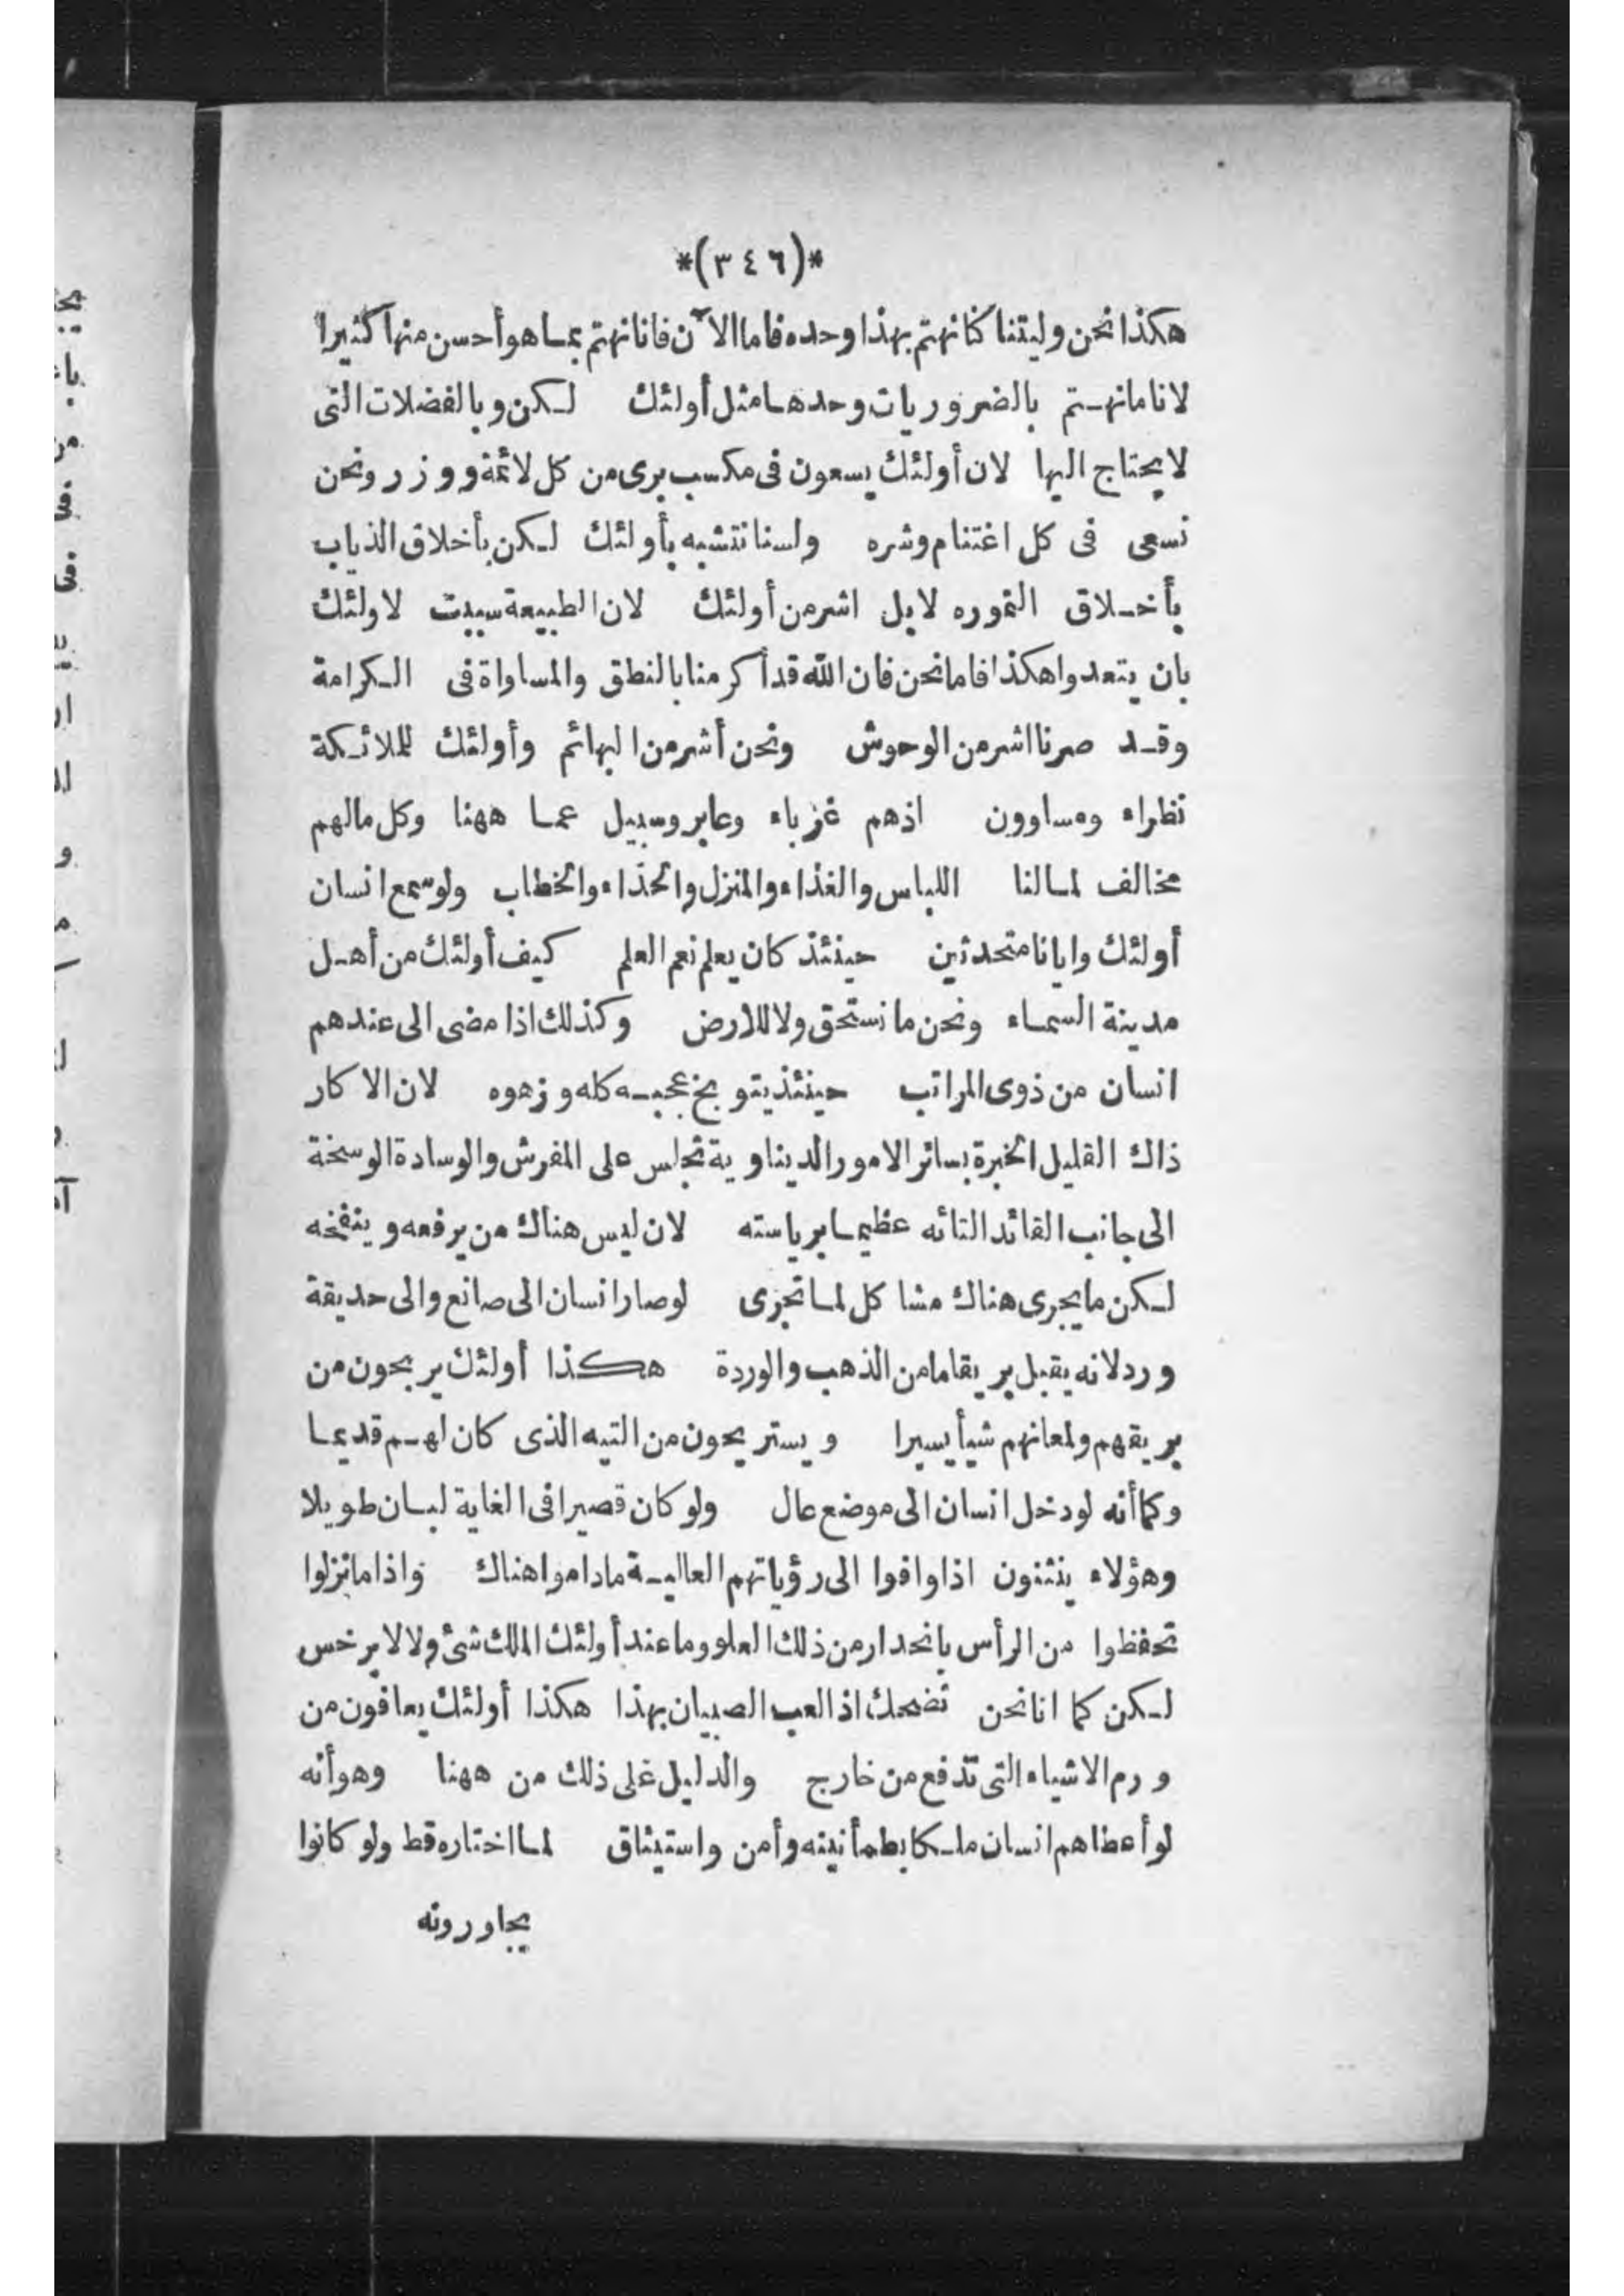 *(٣٤٦)*
هكذا نحن وليتنا كنا نهتم بهذا وحده فاما الآن فانا نهتم بما هو أحسن منها كثيرا
لانا ما نهتم بالضروريات وحدها مثل أولئك لكن وبالفضلات التى
لا يحتاج اليها لان أولئك يسعون فى مكسب برى من كل لائمة ووزر ونحن
نسعى فى كل اغتنام وشره ولسنا نتشبه بأولئك لكن بأخلاق الذياب
بأخلاق النموره لا بل اشر من أولئك لان الطبيعة سببت لاولئك
بان يتعدوا هكذا فاما نحن فان الله قد أكرمنا بالنطق والمساواة فى الكرامة
وقد صرنا اشر من الوحوش ونحن أشر من البهائم وأولئك للملائكة
نظراء ومساوون اذ هم غرباء وعابروسبيل عما ههنا وكل مالهم
مخالف لمالنا اللباس والغذاء والمنزل والحذاء والخطاب ولو سمع انسان
أولئك وايانا متحدثين حينئذ كان يعلم نعم العلم كيف أولئك من أهل
مدينة السماء ونحن ما نستحق ولا للارض وكذلك اذا مضى الى عندهم
انسان من ذوى المراتب حينئذ يتوبخ عجبه كله وزهوه لان الاكار
ذاك القليل الخبرة بسائر الامور الديناوية تجلس على المفرش والوسادة الوسخة
الى جانب القائد التائه عظيما برياسته لان ليس هناك من يرفعه وينفخه
لكن ما يجرى هناك مشاكل لما تجرى لو صار انسان الى صانع والى حديقة
ورد لانه يقبل بريقا ما من الذهب والوردة هكذا أولئك يربحون من
بريقهم ولمعانهم شيأ يسيرا ويستريحون من التيه الذى كان لهم قديما
وكما أنه لو دخل انسان الى موضع عال ولو كان قصيرا فى الغاية لبان طويلا
وهؤلاء ينثنون اذا وافوا الى رؤياتهم العالية ماداموا هناك واذا ما نزلوا
تحفظوا من الرأس بانحدار من ذلك العلو وما عند أولئك الملك شئ ولا لابرخس
لكن كما انا نحن نضحك اذا لعب الصبيان بهذا هكذا أولئك يعافون من
ورم الاشياء التى تدفع من خارج والدليل على ذلك من ههنا وهو أنه
لو أعطاهم انسان ملكا بطمأنينه وأمن واستيثاق لما اختاره قط ولو كانوا
يجاورونه